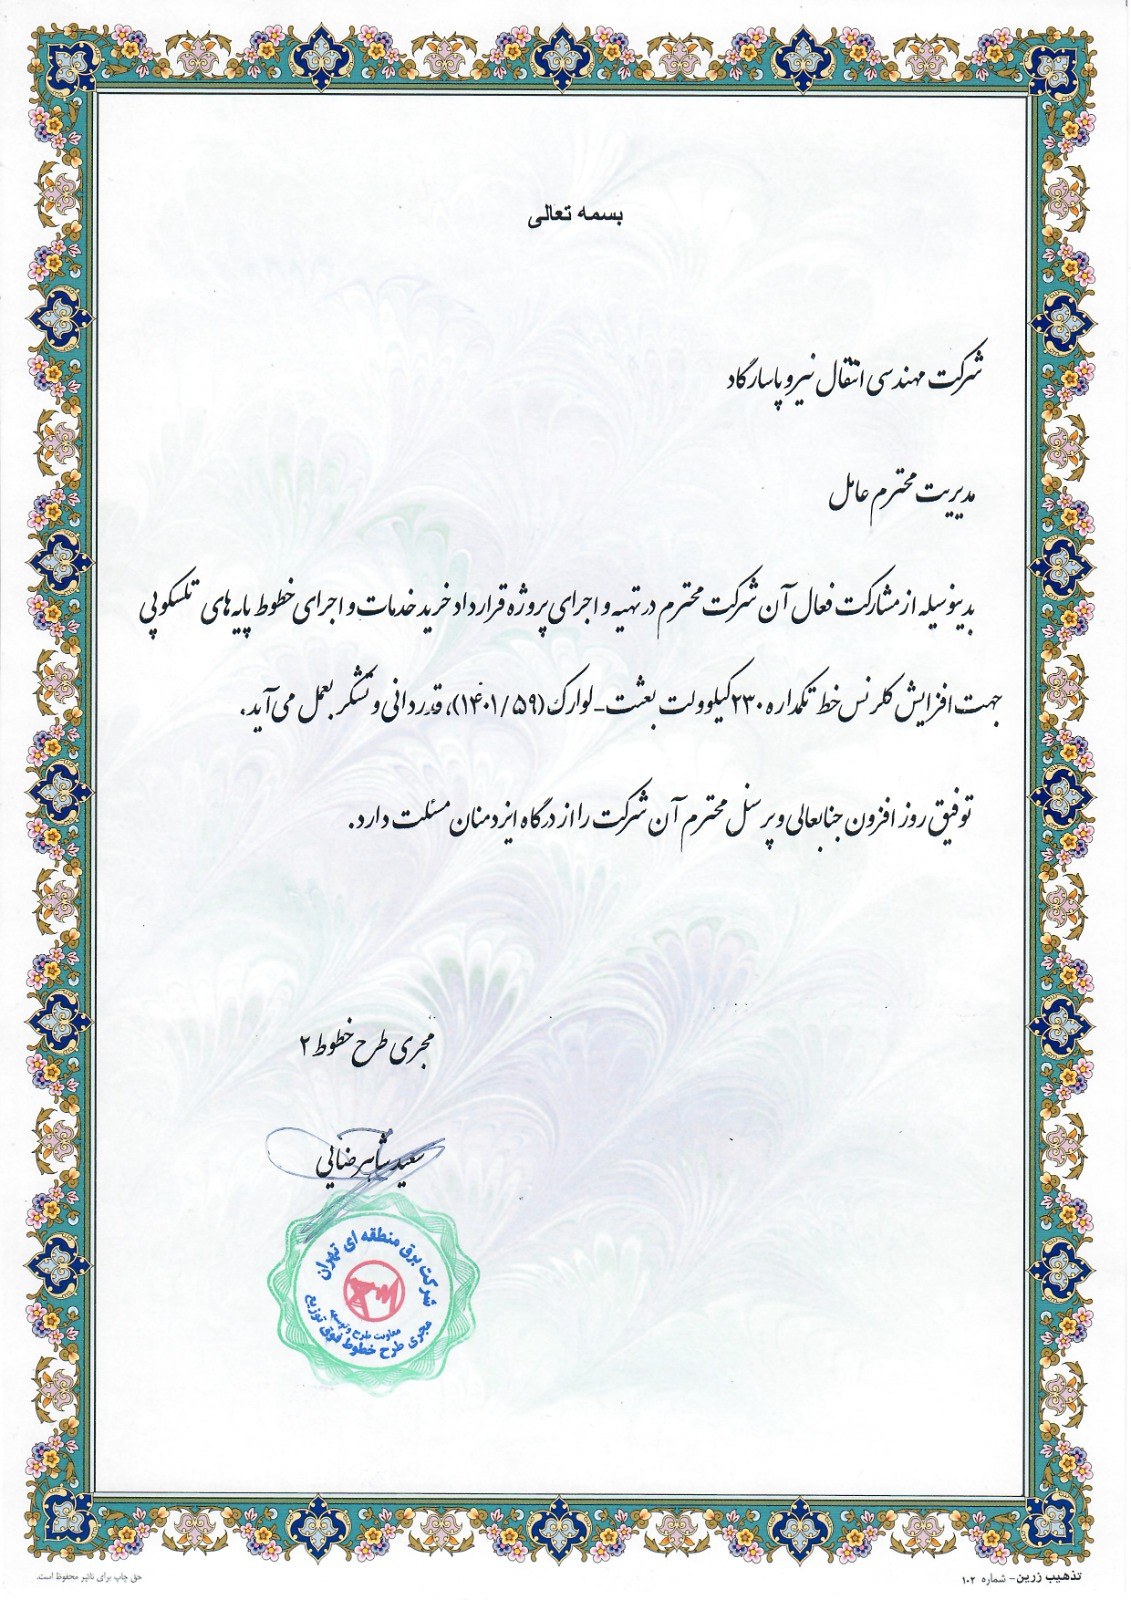 بسمه تعالی
شرکت مهندسی انتقال نیرو پاسارگاد
مدیریت محترم عامل
بدینوسیله از مشارکت فعال آن شرکت محترم در تهیه و اجرای پروژه قرارداد خرید خدمات و اجرای خطوط پایه های تلسکوپی
جهت افزایش کلرنس خط تکمداره ۲۳۰ کیلوولت بعثت-لوارک (۱۴۰۱/۵۹)، قدردانی و تشکر بعمل می آید.
توفیق روز افزون جنابعالی و پرسنل محترم آن شرکت را از درگاه ایزد منان مسئلت دارد.
مجری طرح خطوط ۲
سعید شاهرضایی
شرکت برق منطقه ای تهران
معاونت طرح و توسعه
مجری طرح خطوط فوق توزیع
تذهیب زرین - شماره ۱۰۲
حق چاپ برای ناشر محفوظ است.